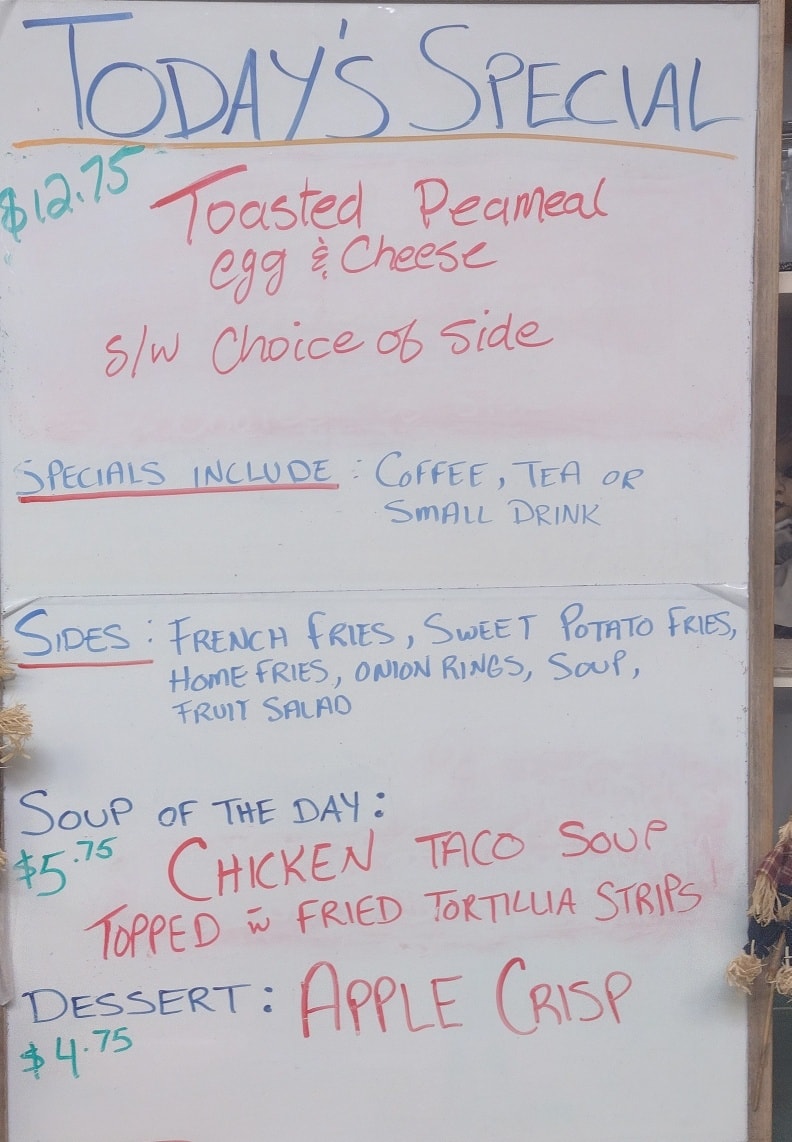 TODAY'S SPECIAL
$12.75
Toasted Peameal
egg & Cheese
s/w Choice of side
SPECIALS INCLUDE : COFFEE, TEA OR
SMALL DRINK
SIDES : FRENCH FRIES, SWEET POTATO FRIES,
HOME FRIES, ONION RINGS, SOUP,
FRUIT SALAD
SOUP OF THE DAY:
$5.75 CHICKEN TACO SOUP
TOPPED w̄ FRIED TORTILLIA STRIPS
DESSERT: APPLE CRISP
$4.75